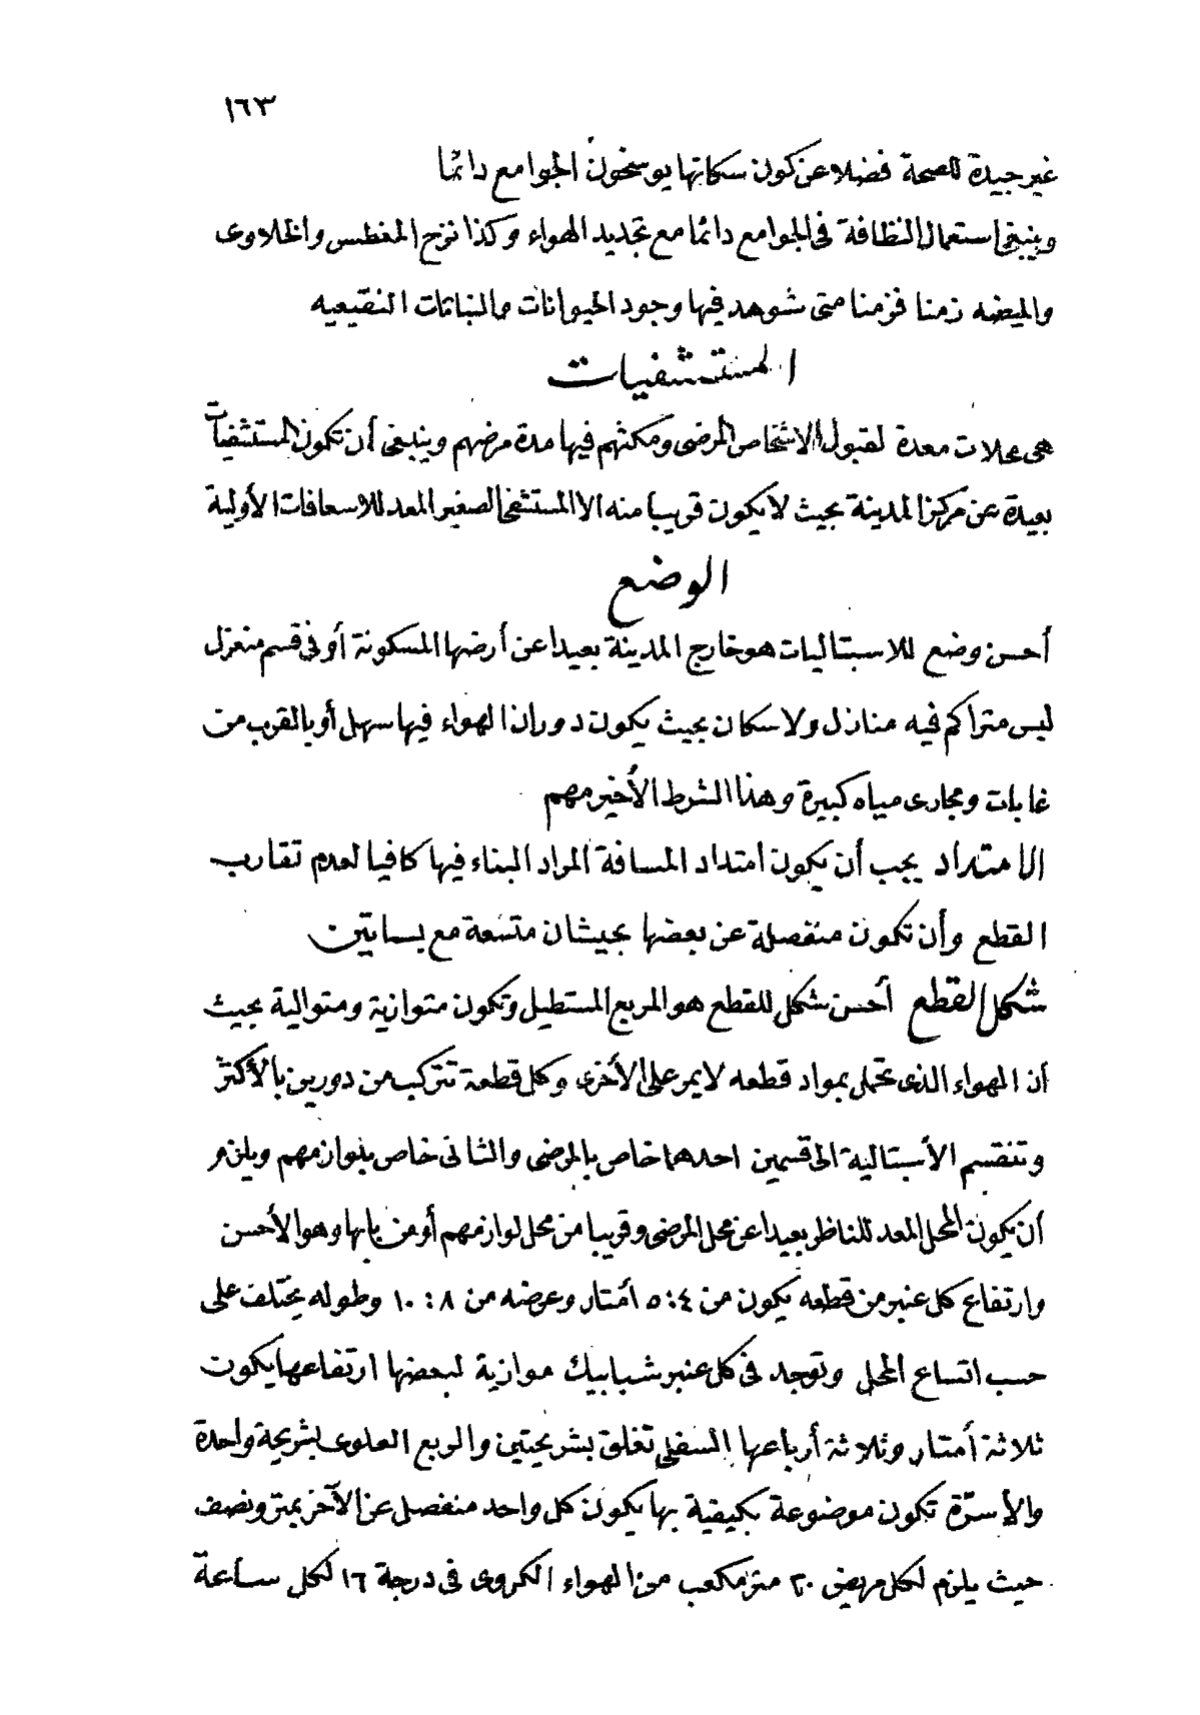 ١٦٣
غير جيدة للصحة فضلا عن كون سكانها يوسخون الجوامع دائما
وينبغى استعمال النظافة فى الجوامع دائما مع تجديد الهواء وكذا نزح المغطس والخلاوى
والميضه زمنا فزمنا متى شوهد فيها وجود الحيوانات والنباتات النقيعيه
المستشفيات
هى محلات معدة لقبول الاشخاص المرضى ومكثهم فيها مدة مرضهم وينبغى أن تكون المستشفيات
بعيدة عن مركز المدينة بحيث لا يكون قريبا منه الا المستشفى الصغير المعد للاسعافات الأولية
الوضع
أحسن وضع للاسبتاليات هو خارج المدينة بعيدا عن أرضها المسكونة أو فى قسم منعزل
ليس متراكم فيه منازل ولا سكان بحيث يكون دوران الهواء فيها سهل أو بالقرب من
غابات ومجارى مياه كبيرة وهذا الشرط الأخير مهم
الامتداد يجب أن يكون امتداد المسافة المراد البناء فيها كافيا لعدم تقارب
القطع وأن تكون منفصلة عن بعضها بحيشان متسعة مع بساتين
شكل القطع أحسن شكل للقطع هو المربع المستطيل وتكون متوازية ومتوالية بحيث
ان الهواء الذى تحمل بمواد قطعه لا يمر على الأخرى وكل قطعة تتركب من دورين بالأكثر
وتنقسم الأسبتالية الى قسمين احدهما خاص بالمرضى والثانى خاص بلوازمهم ويلزم
أن يكون المحل المعد للناظر بعيدا عن محل المرضى وقريبا من محل لوازمهم أو من بابها وهو الأحسن
وارتفاع كل عنبر من قطعه يكون من ٤ : ٥ أمتار وعرضه من ٨ : ١٠ وطوله يختلف على
حسب اتساع المحل وتوجد فى كل عنبر شبابيك موازية لبعضها ارتفاعها يكون
ثلاثة أمتار وثلاثة أرباعها السفلى تغلق بشريحتين والربع العلوى بشريحة واحدة
والأسرّة تكون موضوعة بكيفية بها يكون كل واحد منفصل عن الآخر بمتر ونصف
حيث يلزم لكل مريض ٢٠ متر مكعب من الهواء الكروى فى درجة ١٦ لكل ساعة